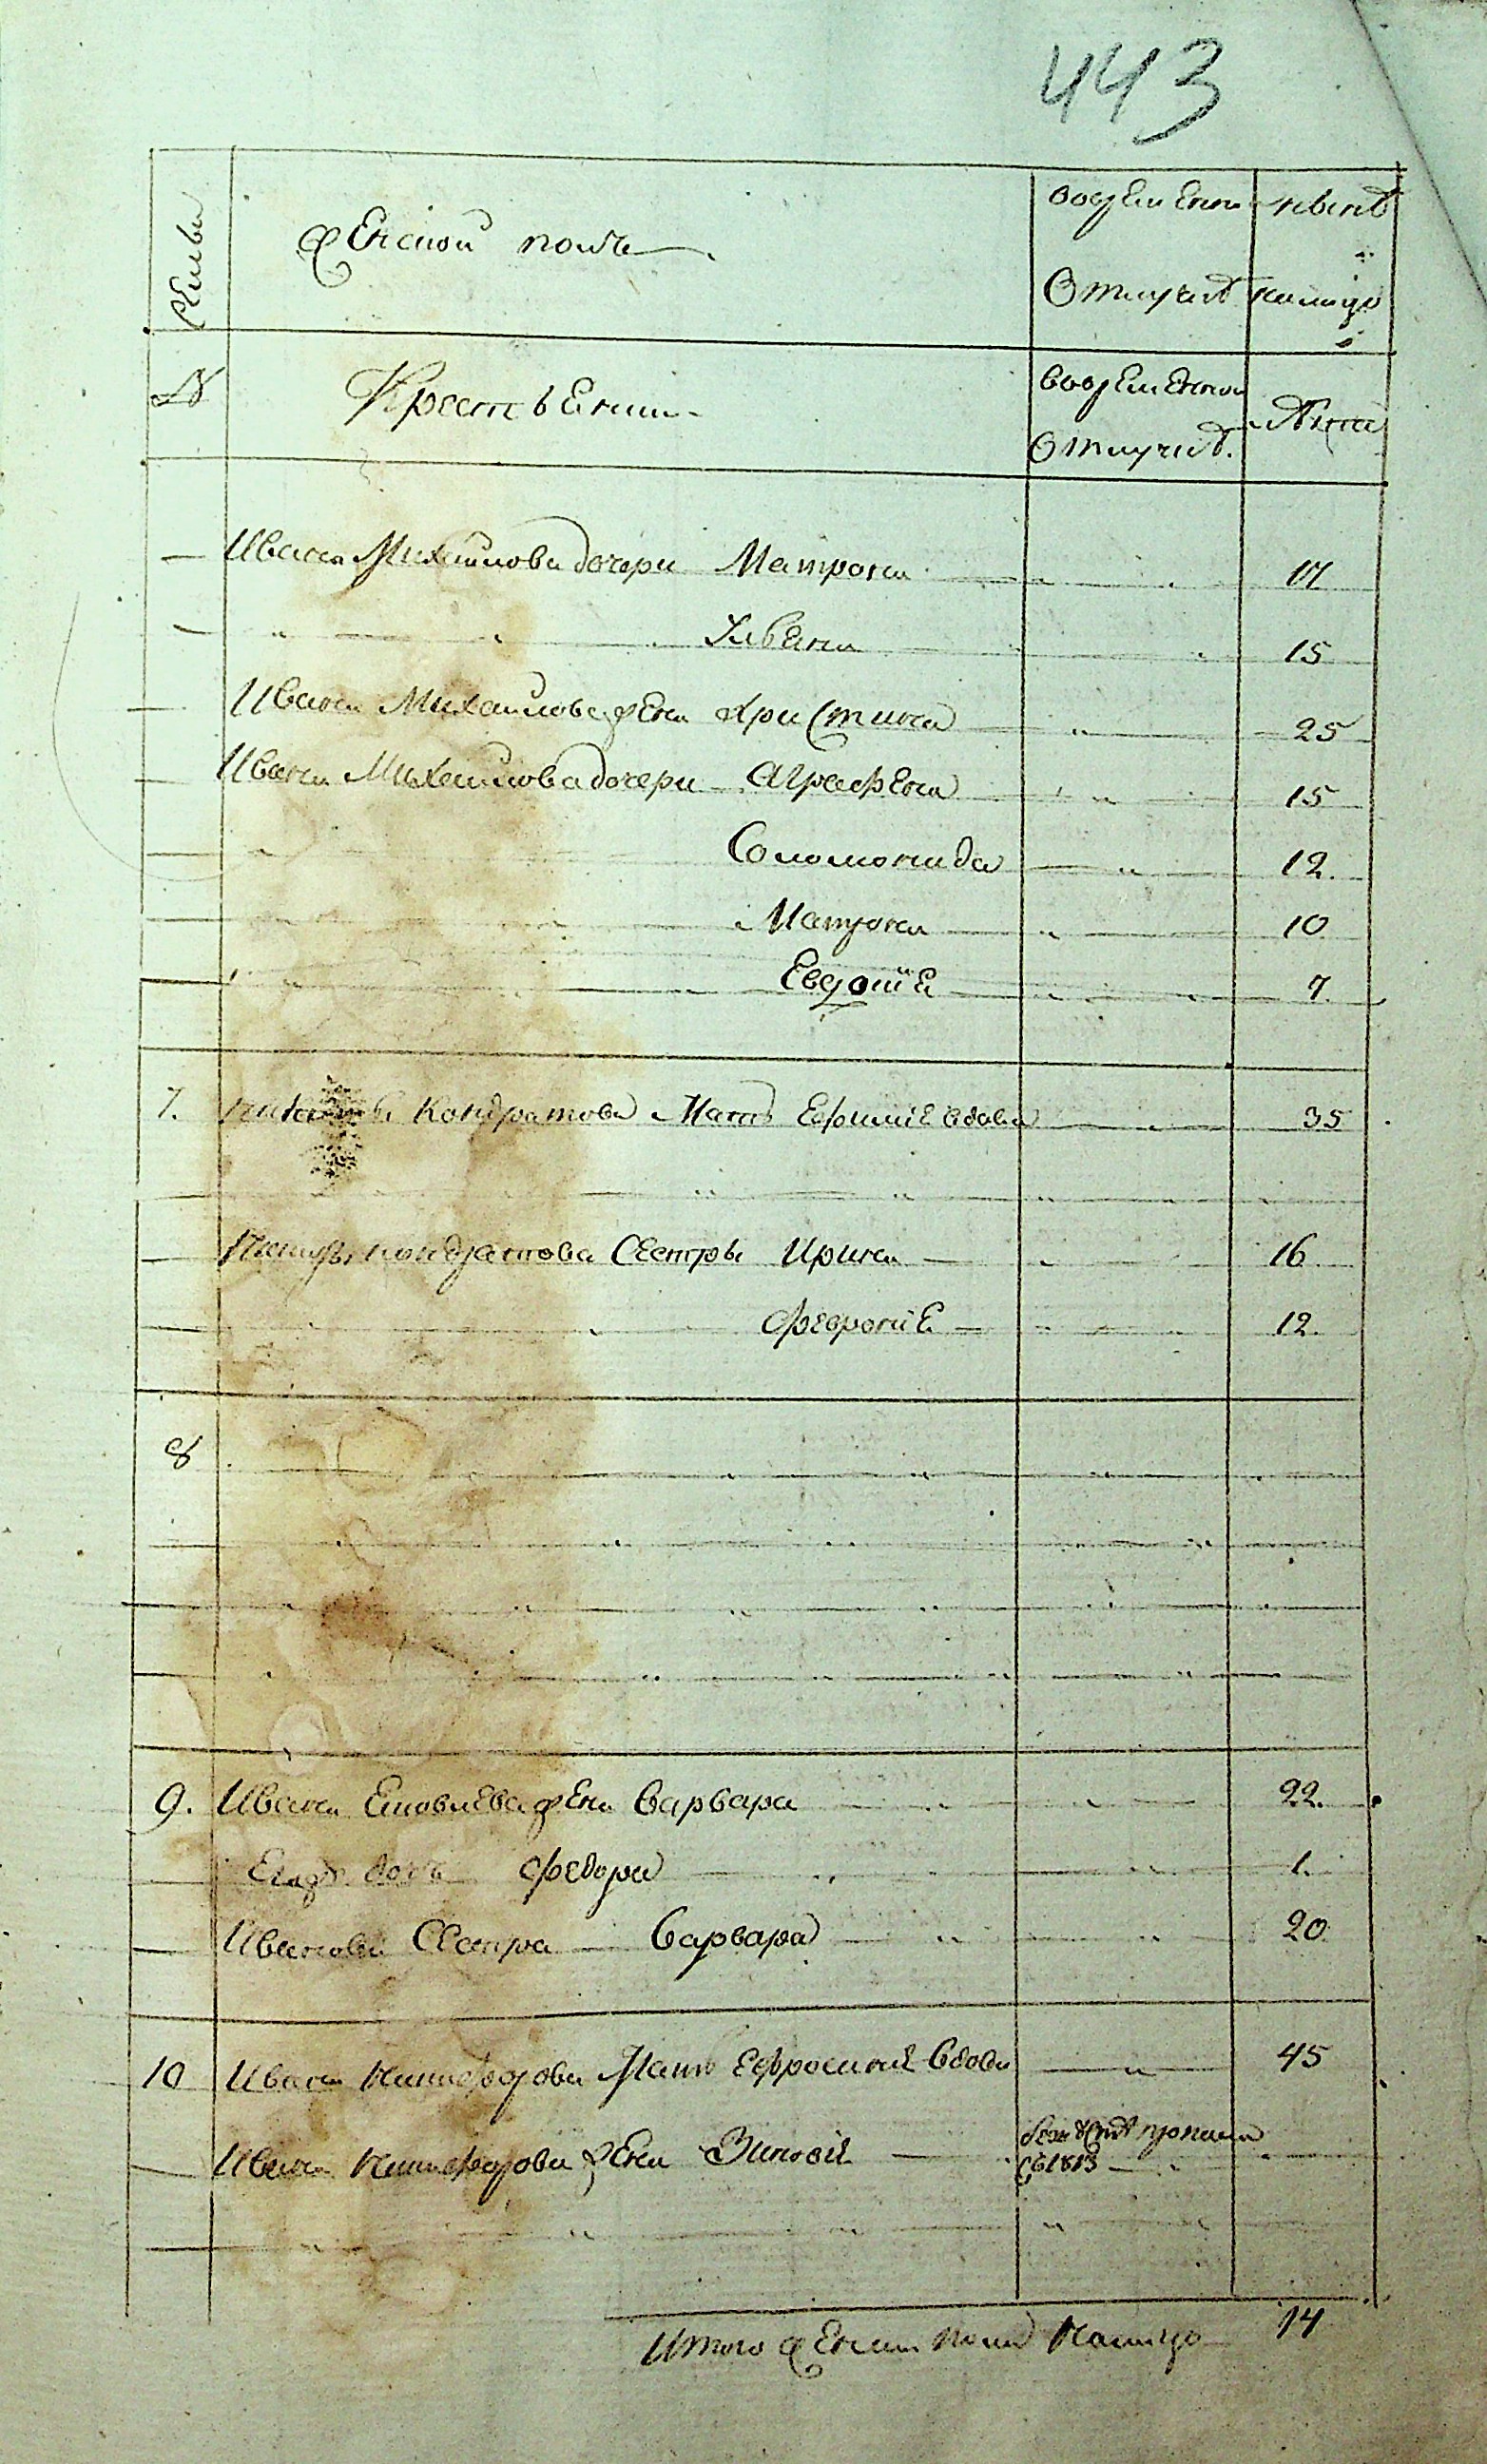 443
Семьи
Женской полъ
во временной
Отлучкѣ
нынѣ
налицо
№
Крестьянки
во временной
Отлучкѣ.
Лѣта
Ивана Михаилова дочери Матрона 17
Ульяна 15
Ивана Михаилова жена Христина 25
Ивана Михаилова дочери Аграфена 15
Соломонида 12.
Матрона 10
Евдокия 7.
7. Кондратова Мать Ефимия вдова 35
Кондратова Сестры Ирина 16
Феврония 12.
8
9. Ивана Ековлева жена Варвара 22.
Ево дочь Федора 1.
Иванова Сестра Варвара 20
10 Ивана Никифорова Мать Ефросиния Вдова 45
Ивана Никифорова жена Зиновия
Съ 1813
Итого Женска пола Налицо 14